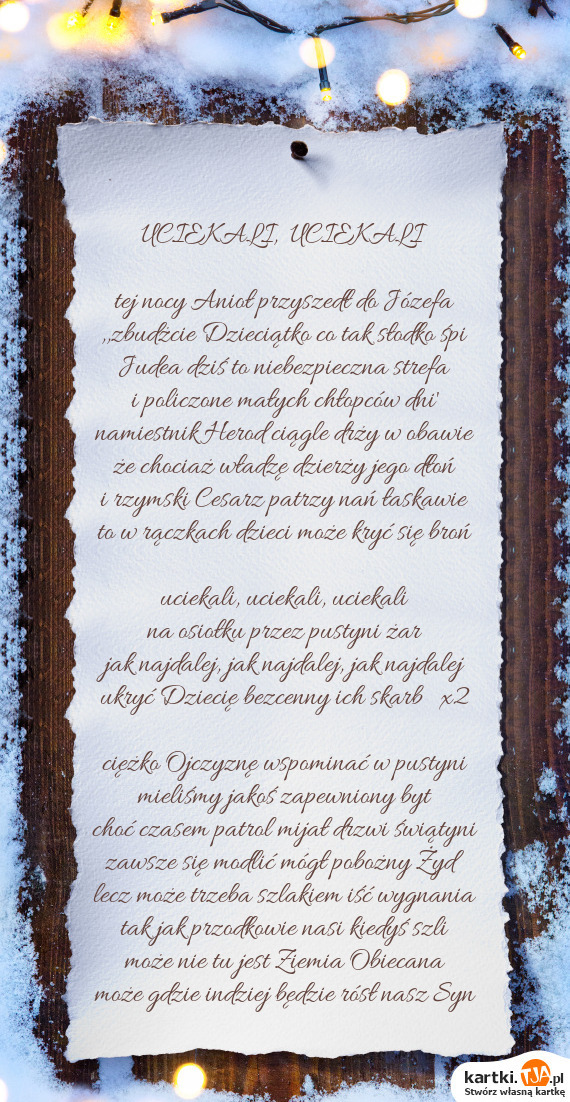 UCIEKALI, UCIEKALI
tej nocy Anioł przyszedł do Józefa
,,zbudźcie Dzieciątko co tak słodko śpi
Judea dziś to niebezpieczna strefa
i policzone małych chłopców dni'
namiestnik Herod ciągle drży w obawie
że chociaż władzę dzierży jego dłoń
i rzymski Cesarz patrzy nań łaskawie
to w rączkach dzieci może kryć się broń
uciekali, uciekali, uciekali
na osiołku przez pustyni żar
jak najdalej, jak najdalej, jak najdalej
ukryć Dziecię bezcenny ich skarb x2
ciężko Ojczyznę wspominać w pustyni
mieliśmy jakoś zapewniony byt
choć czasem patrol mijał drzwi świątyni
zawsze się modlić mógł pobożny Żyd
lecz może trzeba szlakiem iść wygnania
tak jak przodkowie nasi kiedyś szli
może nie tu jest Ziemia Obiecana
może gdzie indziej będzie rósł nasz Syn
kartki.TJA.pl
Stwórz własną kartkę